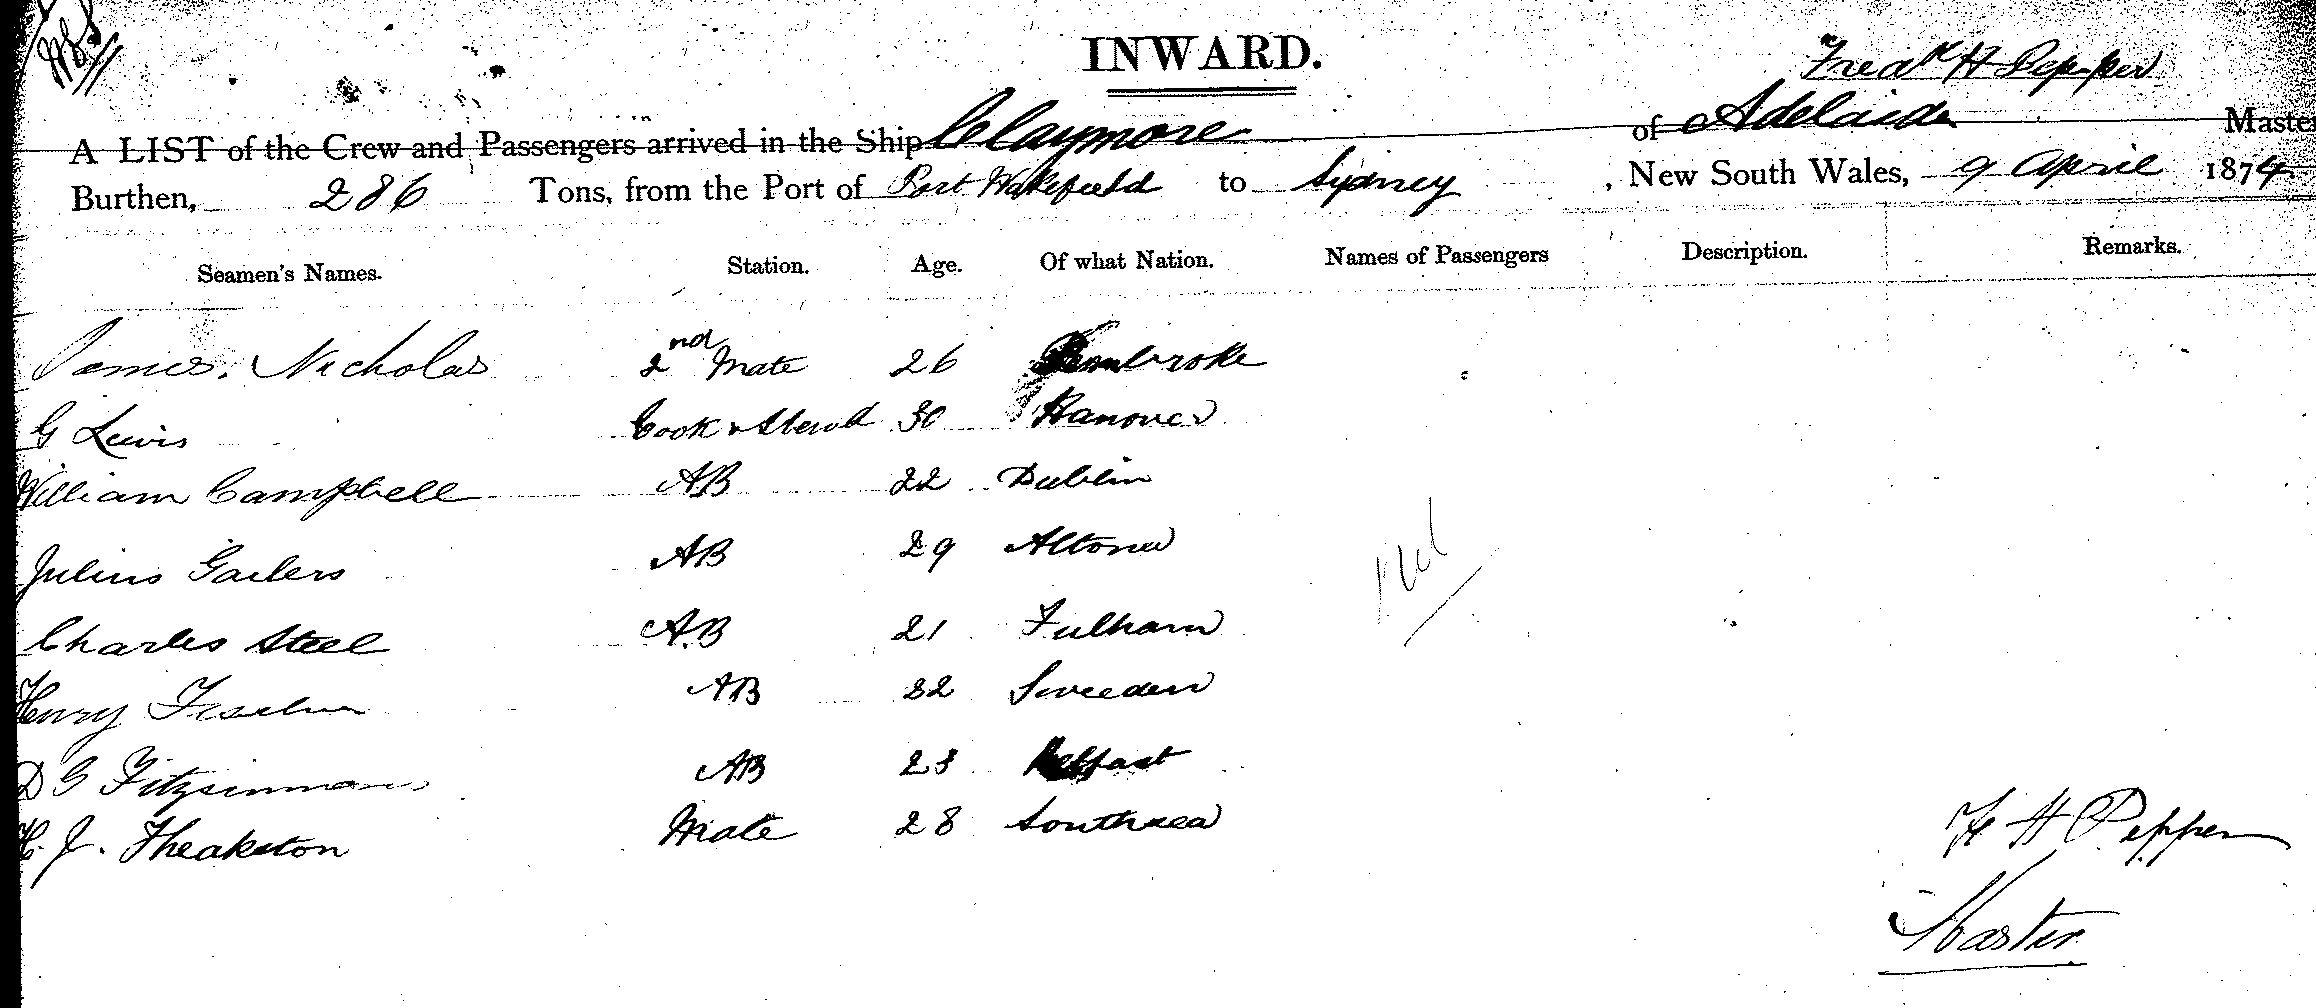 INWARD.
Fredk H Pepper
A LIST of the Crew and Passengers arrived in the Ship Claymore of Adelaide Master
Burthen, 286 Tons, from the Port of Port Wakefield to Sydney, New South Wales, 9 April 1874
Seamen's Names. Station. Age. Of what Nation. Names of Passengers Description. Remarks.
James. Nicholas 2nd Mate 26 Pembroke
G Lewis Cook & Stewd 30 Hanover
William Campbell AB 22 Dublin
Julius AB 29 Altona
Charles Steel AB 21 Fulham
Henry AB 32 Sweeden
D G Fitzsimmons AB 23 Belfast
H. J. Theakston Mate 28 Southsea
F H Pepper
Master